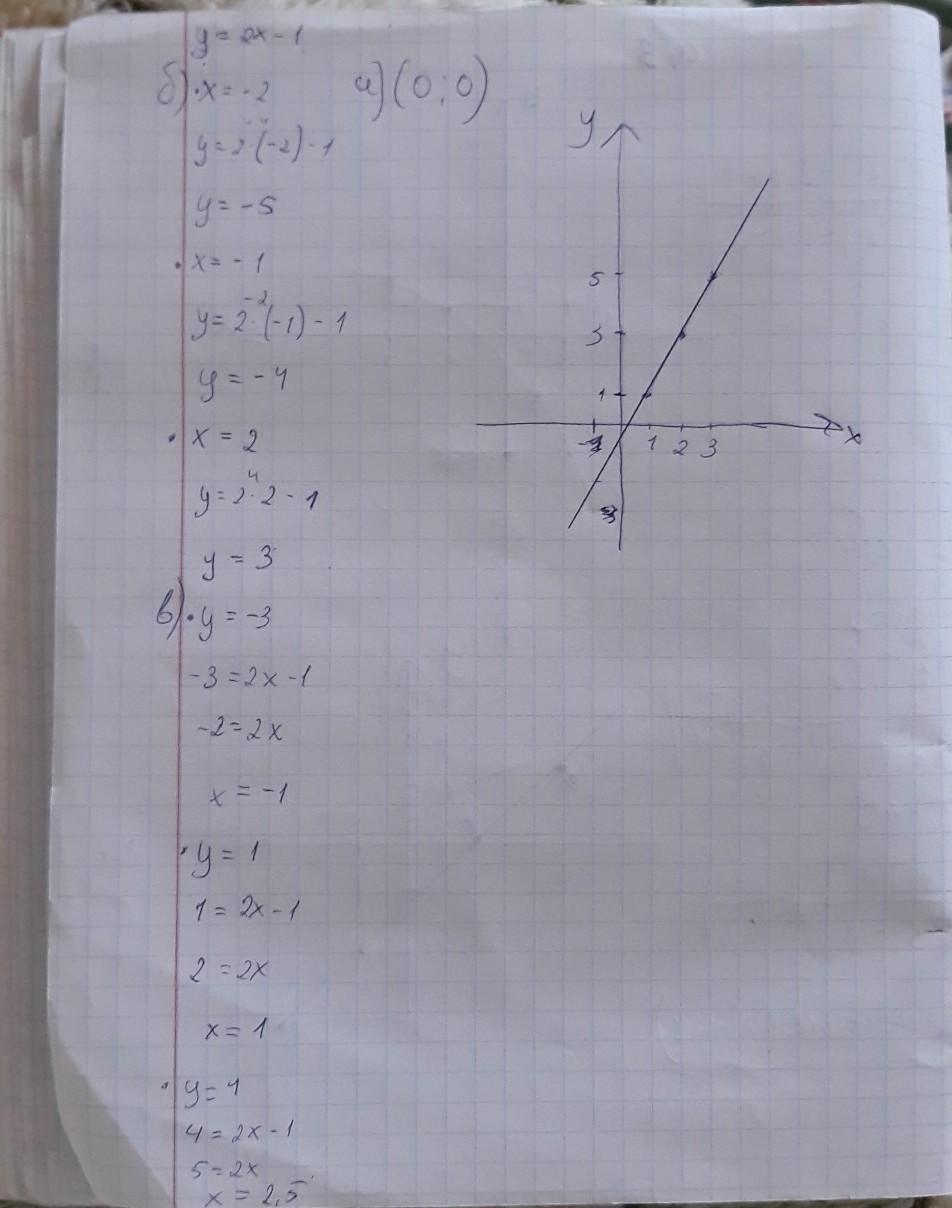 y = 2x - 1
б) • x = -2
а) (0 ; 0)
y = 2 · (-2) - 1
y = -5
• x = -1
-2
y = 2 · (-1) - 1
y = -4
• x = 2
4
y = 2 · 2 - 1
y = 3
в) • y = -3
-3 = 2x - 1
-2 = 2x
x = -1
• y = 1
1 = 2x - 1
2 = 2x
x = 1
• y = 4
4 = 2x - 1
5 = 2x
x = 2,5
y
5
3
1
1 2 3
x